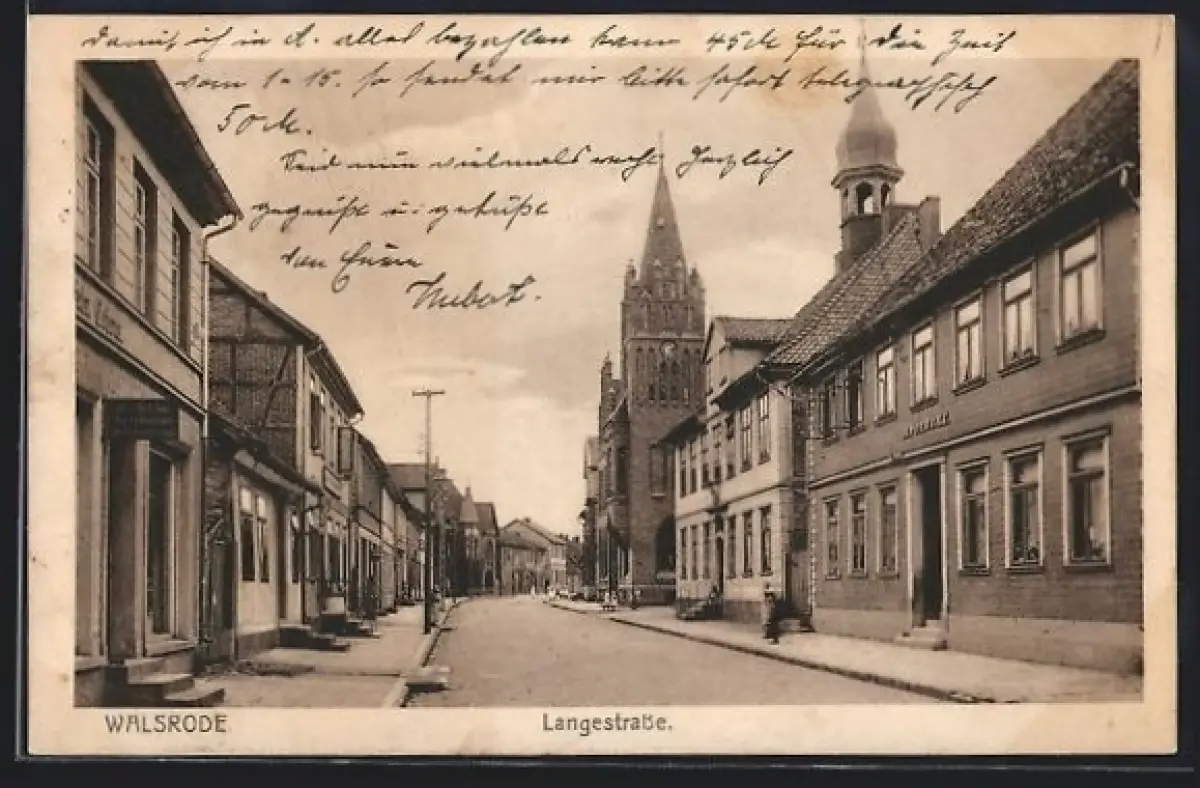 damit ich in d. alles bezahlen kann 45M für die Zeit
vom 1-15. so sendet mir bitte sofort telegraphisch
50M.
Seid nun vielmals recht herzlich
gegrüßt u. geküßt
von Eurem
Hubert.
APOTHEKE
WALSRODE
Langestraße.